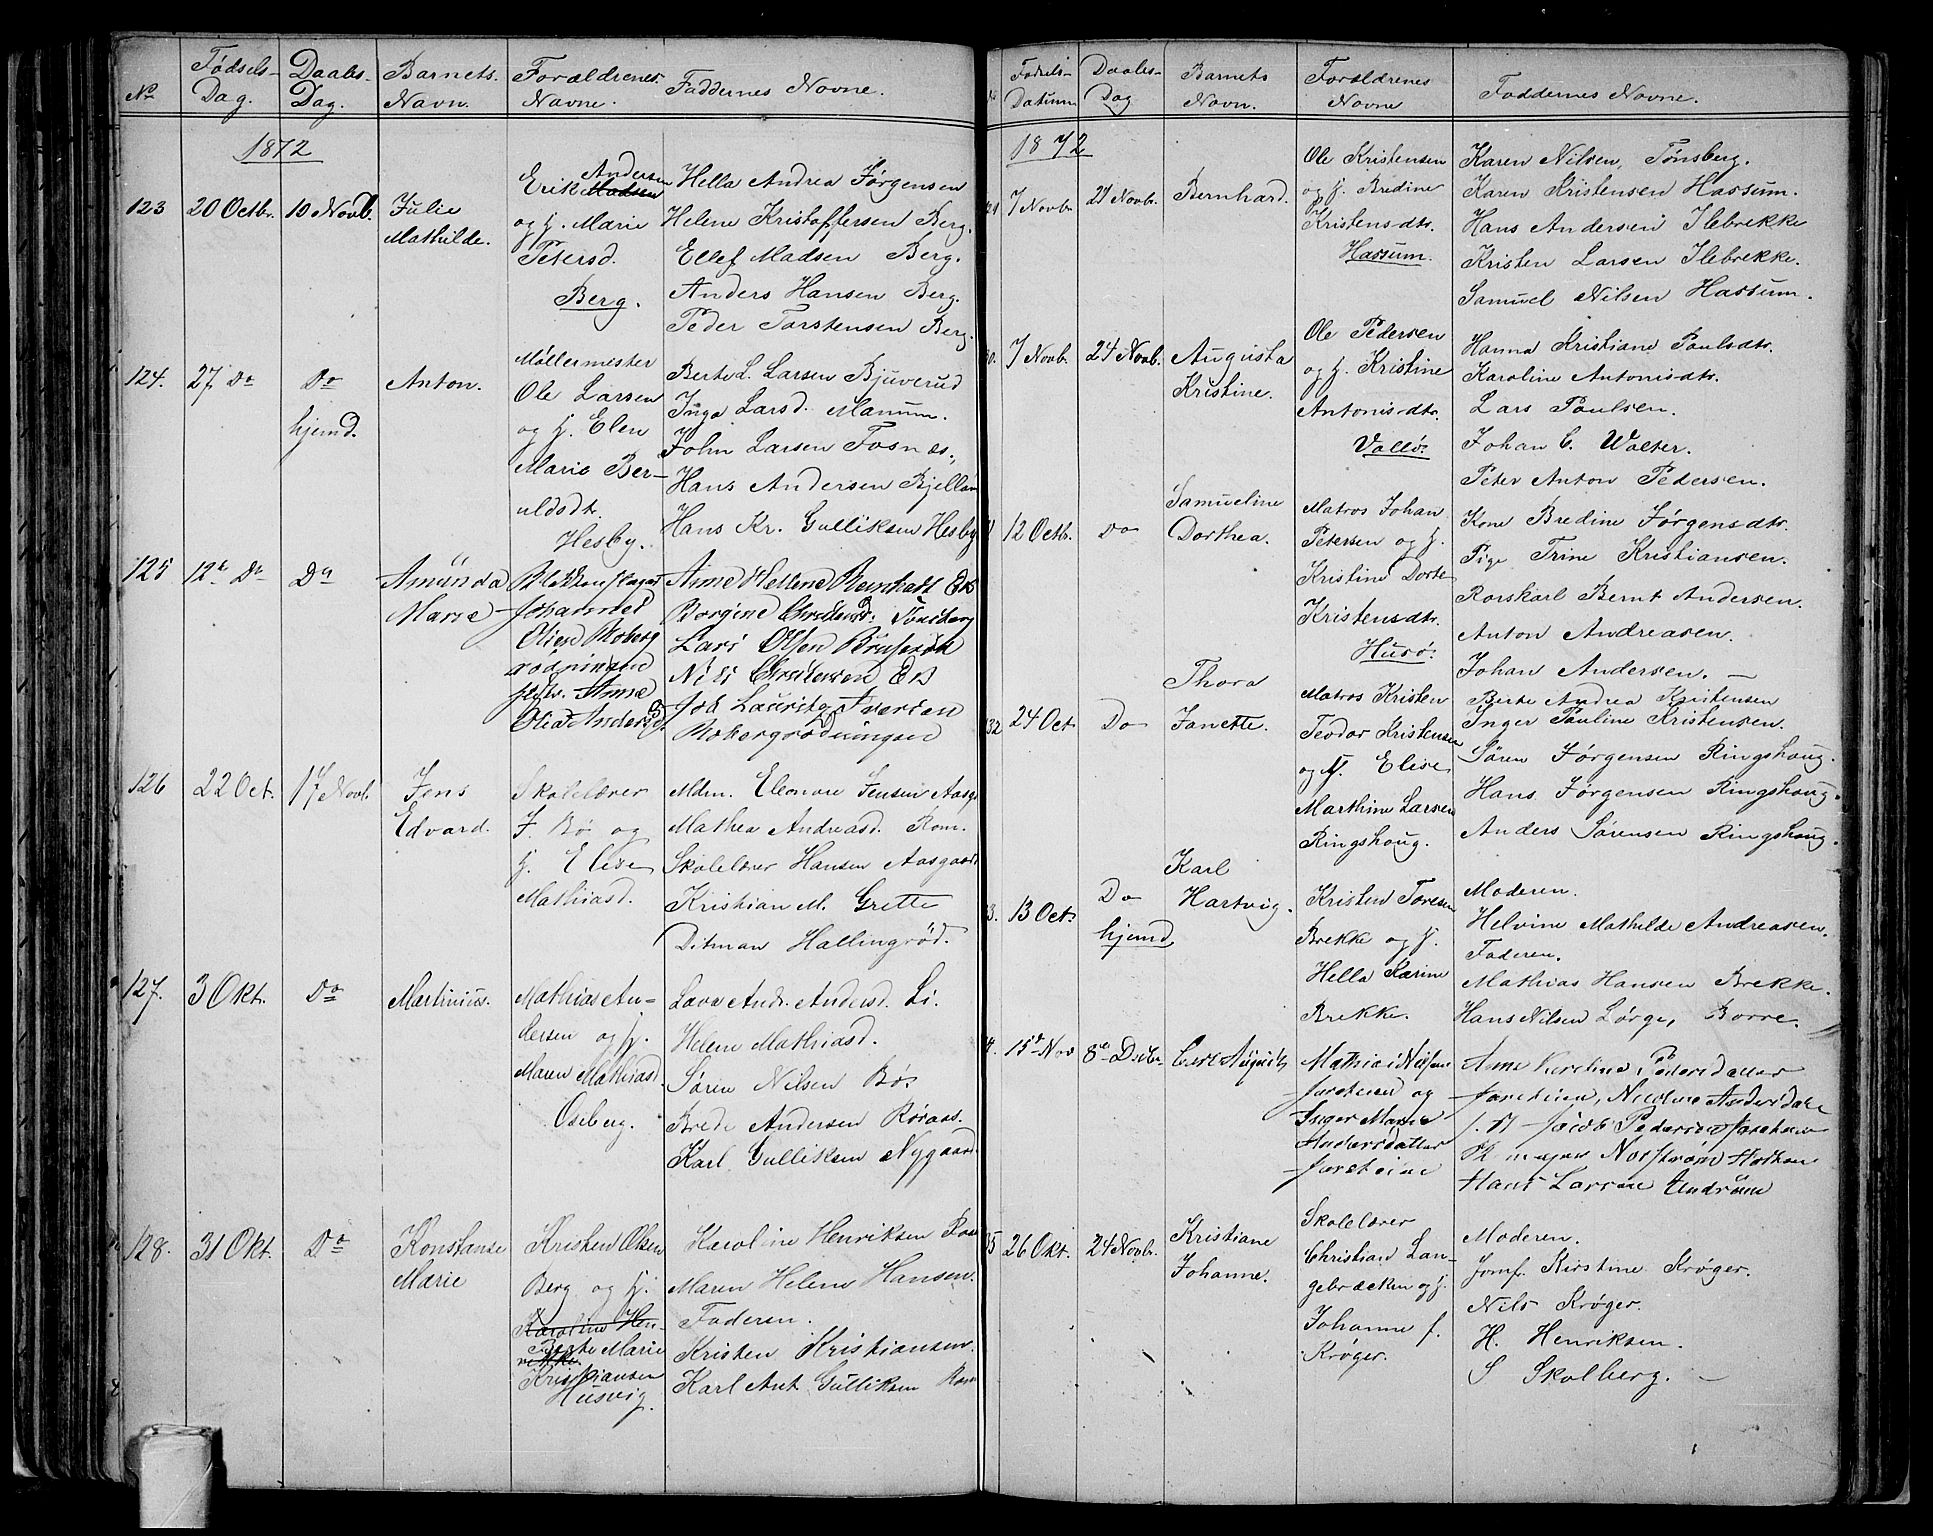 No
Fødsels-
Dag.
Daabs-
Dag.
Barnets
Navn.
Forældrenes
Navne.
Faddernes Navne.
1872
123
20 Octbr.
10 Novb.
Julie
Mathilde.
Andersen
Erik Madsen
og H. Marie
Petersd.
Berg.
Hella Andrea Jørgensen
Helene Kristoffersen Berg.
Ellef Madsen Berg.
Anders Hansen Berg.
Peder Torstensen Berg.
124.
27 Do
Do
hjemd.
Anton.
Møllermester
Ole Larsen
og H. Elen
Marie Ber-
uldsdtr.
Hesby.
Berte L. Larsen Bjuverud
Inga Larsd. Manum.
John Larsen Fosnes.
Hans Andersen Bjelland
Hans Kr. Gulliksen Hesby
125
12te Do
Do
Amunda
Marie
Johannes
Olsen
Anne
Anne Hellene
Lars Olsen
Nils
126
22 Oct.
17 Novb.
Jens
Edvard.
Skolelærer
J. Bø og
H. Elise
Mathiasd.
Mdm. Eleonore Jensen Aasg
Mathea Andreasd. Rom.
Skolelærer Hansen Aasgaard
Kristian M. Grette
Ditman Hallingrød.
127.
3 Okt.
Do
Martinius.
Mathias An-
dersen og H.
Maren Mathiasd.
Oseberg.
Lava Andr. Andersd. Li.
Helene Mathiasd.
Søren Nilsen Bø.
Brede Andersen Røraas.
Karl Gulliksen Nygaard
128.
31 Okt.
Do
Konstanse
Marie
Kristen Olsen
Berg og H.
Karoline Hen-
Berte Marie
rikke
Kristiansen
Husvig.
Karoline Henriksen
Maren Helene Hansen.
Faderen.
Kristen Kristiansen.
Karl Ant. Gulliksen Rom
Fødsels-
Datum
Daabs-
Dag
Barnets
Navn.
Forældrenes
Navne
Faddernes Navne.
1872
7 Novbr.
24 Novbr.
Bernhard.
Ole Kristensen
og H. Bredine
Kristensdtr.
Hassum.
Karen Nilsen, Tønsberg.
Karen Kristensen Hassum.
Hans Andersen Ilebrekke
Kristen Larsen Ilebrekke.
Samuel Nilsen Hassum.
7 Novb.
24 Novb.
Augusta
Kristine.
Ole Pedersen
og H. Kristine
Antonisdtr.
Vallø.
Hanna Kristiane Paulsdtr.
Karoline Antonisdtr.
Lars Paulsen.
Johan C. Walter.
Peter Anton Pedersen.
12 Octb.
Do
Samueline
Dorthea.
Matros Johan
Petersen og H.
Kristine Dorte
Kristensdtr.
Husø.
Kone Bredine Jørgensdtr.
Pige Trine Kristiansen.
Rorskarl Bernt Andersen.
Anton Andreasen.
Johan Andersen.
32
24 Oct
Do
Thora
Janette.
Matros Kristen
Teodor Kristensen
og H. Elise
Marthine Larsen
Ringshoug.
Berte Andrea Kristensen
Inger Pauline Kristensen.
Søren Jørgensen Ringshoug.
Hans Jørgensen Ringshoug.
Anders Sørensen Ringshoug.
3.
13 Oct.
Do
hjemd.
Karl
Hartvig.
Kristen Toresen
Brekke og H.
Hella Karine
Brekke.
Moderen.
Helvine Mathilde Andreasen.
Faderen.
Mathias Hansen Brekke.
Hans Nilsen Lørge, Borre.
4.
15de Nov
8de Decbr.
Carl August
Mathias Nilsen
Jarsteien og
Inger Marie
Andersdatter
Jarsteien
Anne Kirstine Pedersdatter
Jarsteien, Nicoline Andersdatter
Jacob Pedersen Jarsteien
Hans Larsen Undrum
35
26 Okt.
24 Novbr.
Kristiane
Johanne.
Skolelærer
Christian Lan-
gebrækken og H.
Johanne f.
Krøger.
Moderen.
Jomf. Kirstine Krøger.
Nils Krøger.
H. Henriksen.
S Skolberg.